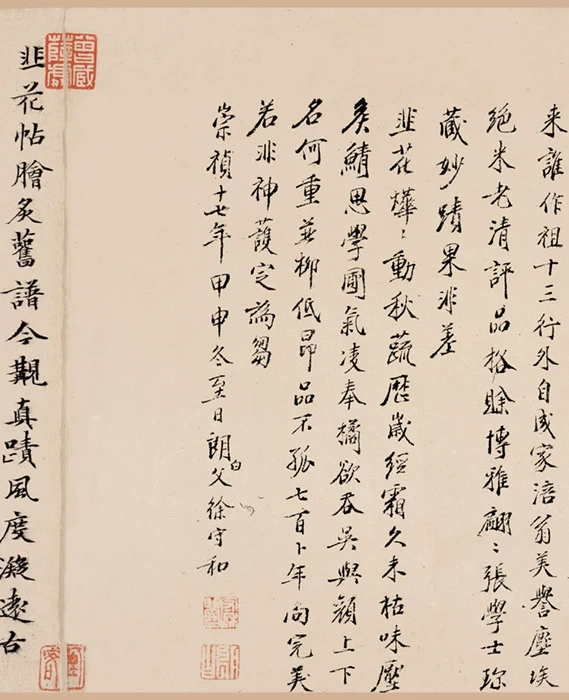 来誰作祖十三行外自成家涪翁美譽塵埃
絶米老清評品格賒博雅翩〻張學士珎
藏妙蹟果非差
韭花燁〻動秋蔬歷歲經霜久未枯味壓
矦鯖思學圃氣凌奉橘欲吞吴與顏上下
名何重並柳低昂品不孤七百卜年尚完美
若非神護定為芻
崇禎十七年甲申冬至日朗白父徐守和
韭花帖膾炙舊譜今觀真蹟風度凝遠古